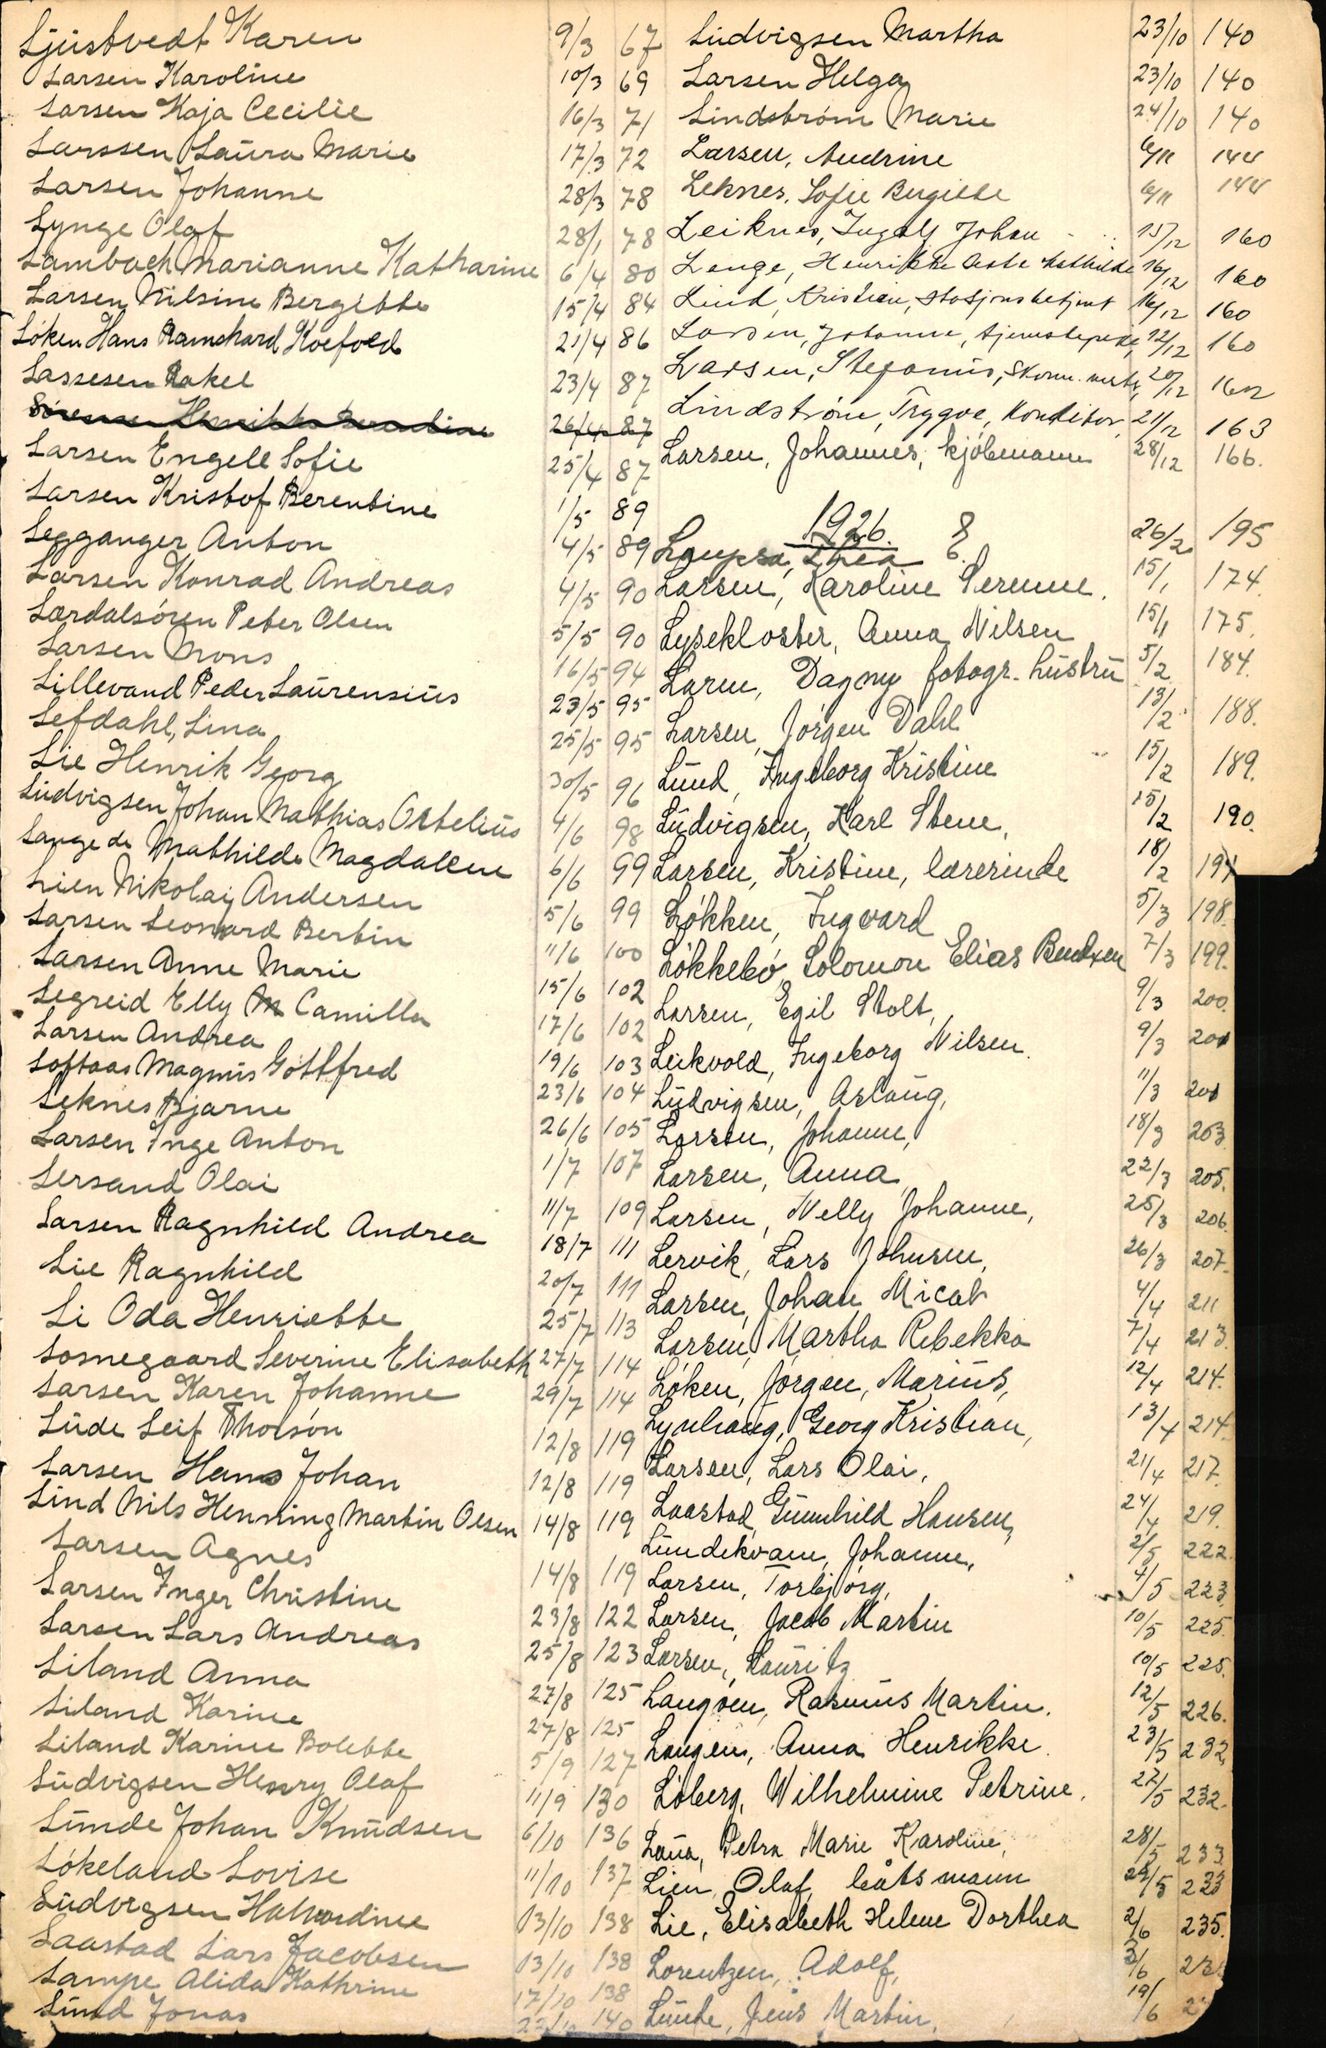 Ljustvedt Karen 9/3 67
Larsen Karoline 10/3 69
Larsen Kaja Cecilie 16/3 71
Larssen Laura Marie 17/3 72
Larsen Johanne 28/3 78
Lynge Olaf 28/1 78
Lambach Marianne Katharine 6/4 80
Larsen Nilsine Bergitte 15/4 84
Løken Hans Ramshard Koefoed 21/4 86
Lassesen Rakel 23/4 87
26/4 87
Larsen Engell Sofie 25/4 87
Larsen Kristof Berentine 1/5 89
Legganger Anton 4/5 89
Larsen Konrad Andreas 4/5 90
Lærdalsøren Peter Olsen 5/5 90
Larsen Mons 16/5 94
Lillevand Peder Laurensius 23/5 95
Lefdahl, Lina 25/5 95
Lie Henrik Georg 30/5 96
Ludvigsen Johan Mathias Ortelius 4/6 98
Lange de Mathilde Magdalene 6/6 99
Lien Nikolaj Andersen 5/6 99
Larsen Leonard Bertin 11/6 100
Larsen Anne Marie 15/6 102
Legreid Elly M Camilla 17/6 102
Larsen Andrea 19/6 103
Loftaas Magnus Gottfred 23/6 104
Leknes Bjarne 26/6 105
Larsen Inge Anton 1/7 107
Lersand Olai 11/7 109
Larsen Ragnhild Andrea 18/7 111
Lie Ragnhild 20/7 111
Li Oda Henriette 25/7 113
Losnegaard Severine Elisabeth 27/7 114
Larsen Karen Johanne 29/7 114
Lude Leif Thorsøn 12/8 119
Larsen Hans Johan 12/8 119
Lind Nils Henning Martin Olsen 14/8 119
Larsen Agnes 14/8 119
Larsen Inger Christine 23/8 122
Larsen Lars Andreas 25/8 123
Liland Anna 27/8 125
Liland Karine 27/8 125
Liland Karine Bolette 5/9 127
Ludvigsen Henry Olaf 11/9 130
Lunde Johan Knudsen 6/10 136
Løkeland Lovise 11/10 137
Ludvigsen Halvardine 13/10 138
Laastad Lars Jacobsen 13/10 138
Lampe Alida Kathrine 17/10 138
Lund Jonas 22/10 140
Ludvigsen Martha 23/10 140
Larsen Helga 23/10 140
Lindstrøm Marie 24/10 140
Larsen, Andrine 6/11 144
Leknes, Sofie Birgitte 6/11 144
Leiknes, Ingolf Johan 15/12 160
Lange, Henrikke Aste Mathilde 16/12 160
Lind, Kristian, stasjonsbetjent 16/12 160
Larsen, Johanne, tjenestepike, 12/12 160
Larsen, Stefanus, 20/12 162
Lindstrøm, Trygve, Konditor, 21/12 163
Larsen, Johannes, kjøbmann 28/12 166.
1926.
Laupsa, Thea E. 26/2 195
Larsen, Karoline Serenne. 15/1 174.
Lysekloster, Anna Nilsen 15/1 175.
Larm, Dagny fotogr. hustru 5/2 184.
Larsen, Jørgen Dahl 13/2 188.
Lund, Ingeborg Kristine 15/2 189.
Ludvigsen, Karl Stene, 15/2 190.
Larsen, Kristine, lærerinde 18/2 194
Løkken, Ingvard 5/3 198.
Løkkebø, Solomon Elias Bendixen 7/3 199.
Larsen, Egil Stolt, 9/3 200.
Leikvold, Ingeborg Nilsen. 9/3 200
Ludvigsen, Aslaug, 11/3 201
Larsen, Johanne, 18/3 203
Larsen, Anna, 22/3 205.
Larsen, Nelly Johanne, 25/3 206.
Lervik, Lars Johnsen, 26/3 207.
Larsen, Johan Micat 4/4 211
Larsen, Martha Rebekka 7/4 213.
Løken, Jørgen, Marius, 12/4 214.
Lynhaug, Georg Kristian, 13/4 214.
Larsen, Lars Olai, 21/4 217.
Laastad, Gunnhild Hansen, 24/4 219.
Lundekvam, Johanne, 2/5 222.
Larsen, Torbjørg, 4/5 223
Larsen, Jacob Martin 10/5 225.
Larsen, Lauritz 10/5 225.
Langøen, Rasmus Martin. 12/5 226.
Langen, Anna Henrikke. 23/5 232,
Løberg, Wilhelmine Petrine. 27/5 232.
Laua, Petra Marie Karoline, 28/5 233
Lien, Olaf, båtsmann 29/5 233
Lie, Elisabeth Helene Dorthea 2/6 235.
Lorentzen, Adolf, 3/6
Lunde, Jens Martin, 19/6